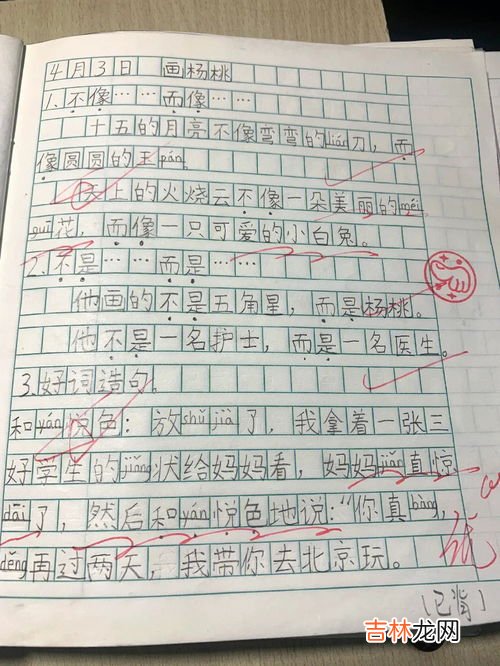 4月3日 画杨桃
1.不像……而像……
十五的月亮不像弯弯的lián刀，而
像圆圆的玉pán。
天上的火烧云不像一朵美丽的méi
guī花，而像一只可爱的小白兔。
2.不是……而是……
他画的不是五角星，而是杨桃。
他不是一名护士，而是一名医生。
3.好词造句。
和yán悦色：放shǔ jià了，我拿着一张三
好学生的jiǎng状给妈妈看，妈妈jiǎn直惊
dāi了，然后和yán悦色地说：“你真bàng，
děng再过两天，我带你去北京玩。
优
（已背）
吉林龙网